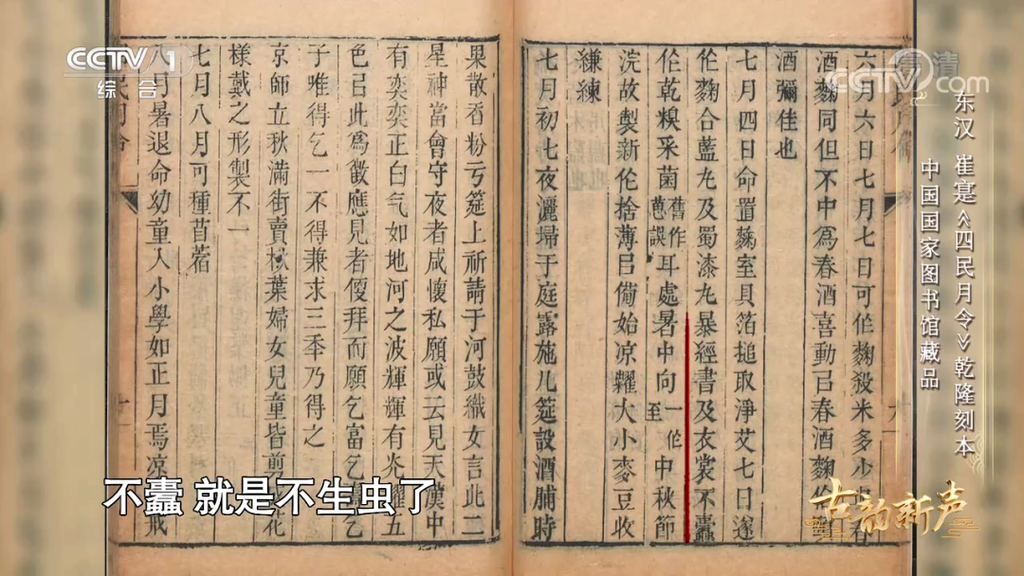 CCTV 1
综合
CCTV.com
高清
东汉 崔寔《四民月令》乾隆刻本
中国国家图书馆藏品
六月六日七月七日可作麴殺米多少春
酒麴同但不中為春酒喜動㠯春酒麴
酒彌佳也
七月四日命置麴室具箔搥取淨艾七日遂
作麴合藍丸及蜀漆丸暴經書及衣裳不蠹
作乾糗采菌舊作葸誤耳處暑中向一作至中秋節
浣故製新作袷薄㠯備始凉糶大小麥豆收
縑練
七月初七夜灑埽于庭露施几筵設酒脯時
果散香粉亏筵上祈請于河鼓織女言此二
星神當會守夜者咸懷私願或云見天漢中
有奕奕正白气如地河之波輝輝有光耀五
色㠯此為徵應見者便拜而願乞富乞
子唯得乞一不得兼求三秊乃得之
京師立秋滿街賣楸葉婦女兒童皆剪花
樣戴之形製不一
七月八月可種苜蓿
八月暑退命幼童入小學如正月焉凉戒
不蠹 就是不生虫了
古韵新声